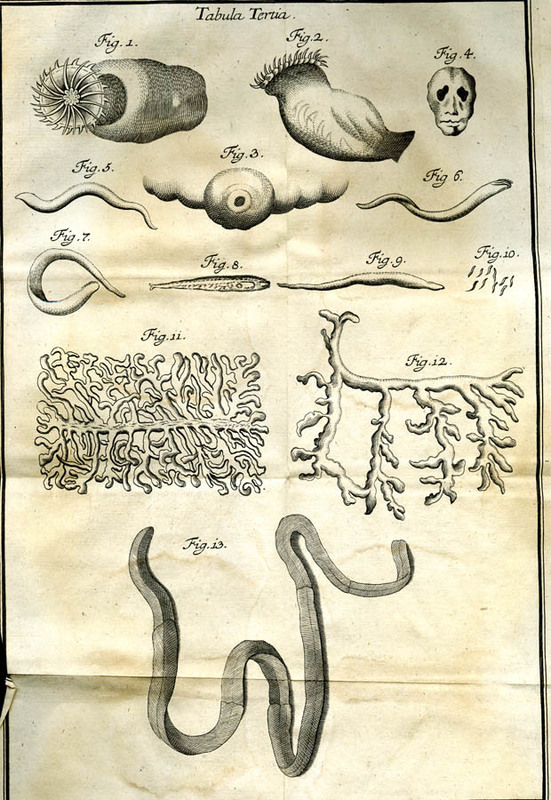 Tabula Tertia.
Fig. 1.
Fig. 2.
Fig. 4.
Fig. 3.
Fig. 5.
Fig. 6.
Fig. 7.
Fig. 8.
Fig. 9.
Fig. 10.
Fig. 11.
Fig. 12.
Fig. 13.